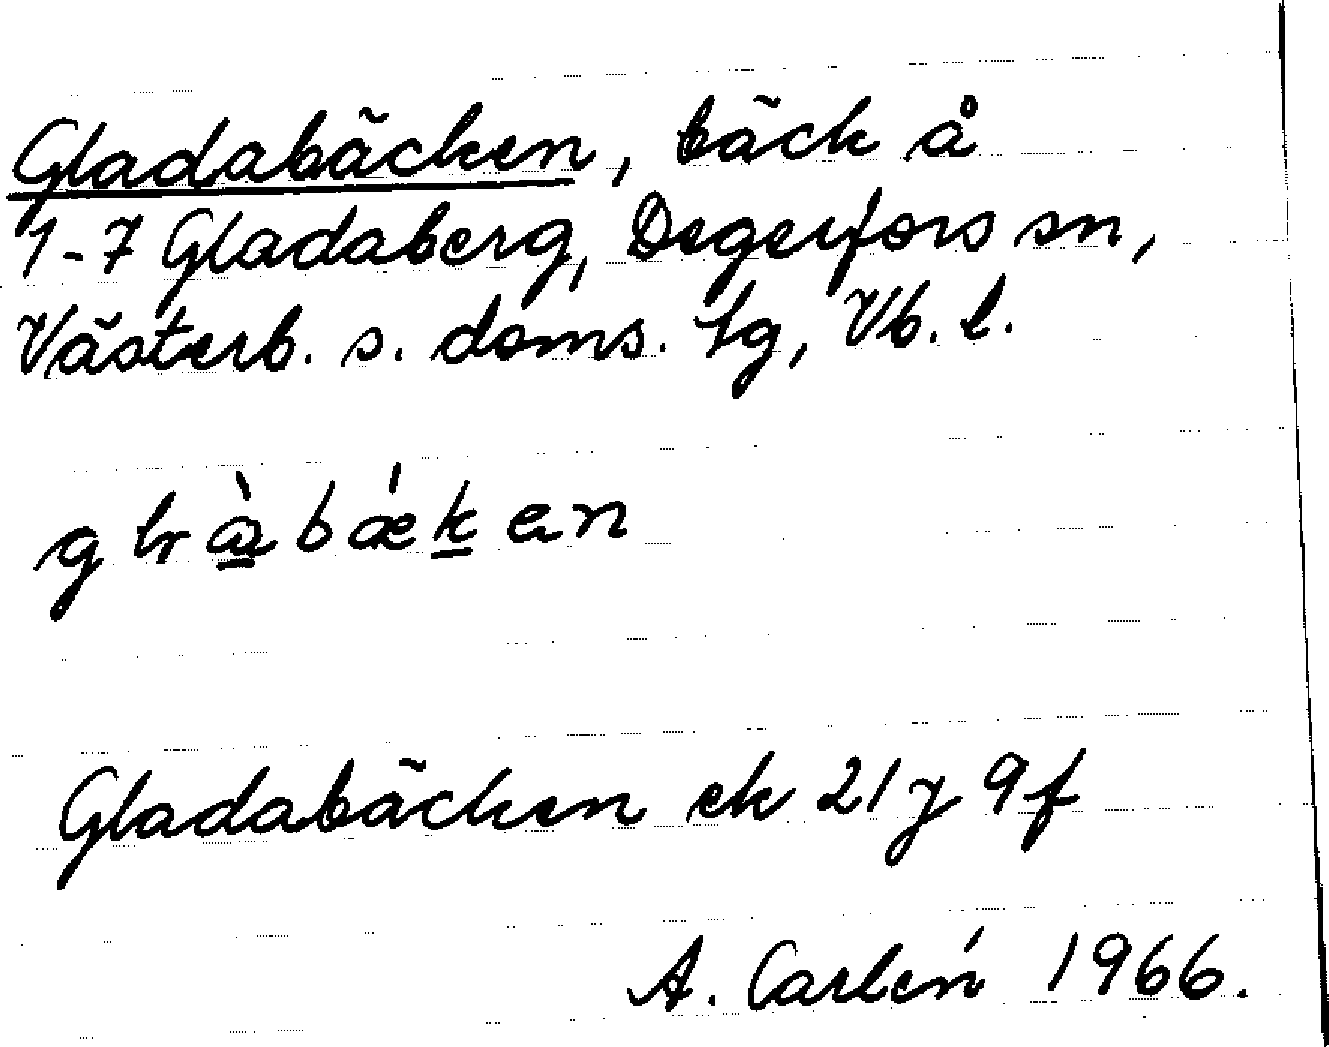 Gladabäcken, bäck å
1-7 Gladaberg, Degerfors sn,
Västerb. s. doms. tg, Vb. l.
Gladabäcken ek 21 J 9 f
A. Carlén 1966.